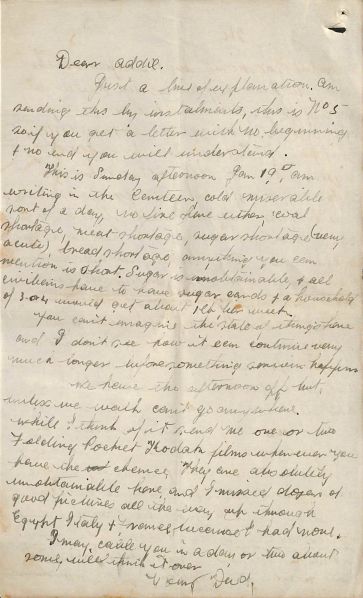 Dear Addie.
Just a line of explanation. am
sending this by instalments, this is No 5
so if you get a letter with no beginning
& no end you will understand.
This is Sunday afternoon Jan 19th am
writing in the Canteen, cold miserable
sort of a day, no fire here either, coal
shortage, meat shortage, sugar shortage (very
acute) bread shortage, anything you can
mention is short. Sugar is unobtainable, & all
civilians have to have sugar cards & a household
of 3 or 4 would get about 1 lb per week.
You can't imagine the state of things here
and I don't see how it can continue very
much longer before something serious happens
We have the afternoon off but
unless we walk can't go anywhere.
Whilst I think of it send me one or two
Folding Pocket Kodak films whenever you
have the chance, They are absolutely
unobtainable here, and I missed dozens of
good pictures all the way up through
Egypt Italy & France because I had none.
I may cable you in a day or two about
some, will think it over
Your